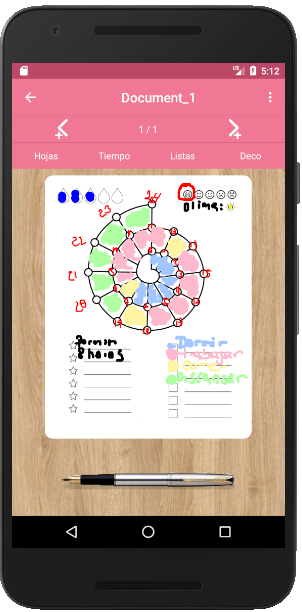 5:12
Document_1
1 / 1
Hojas Tiempo Listas Deco
Clima:
24
23
22
21
20
Dormir
8 horas
Dormir
Trabajar
Comer
Descansar